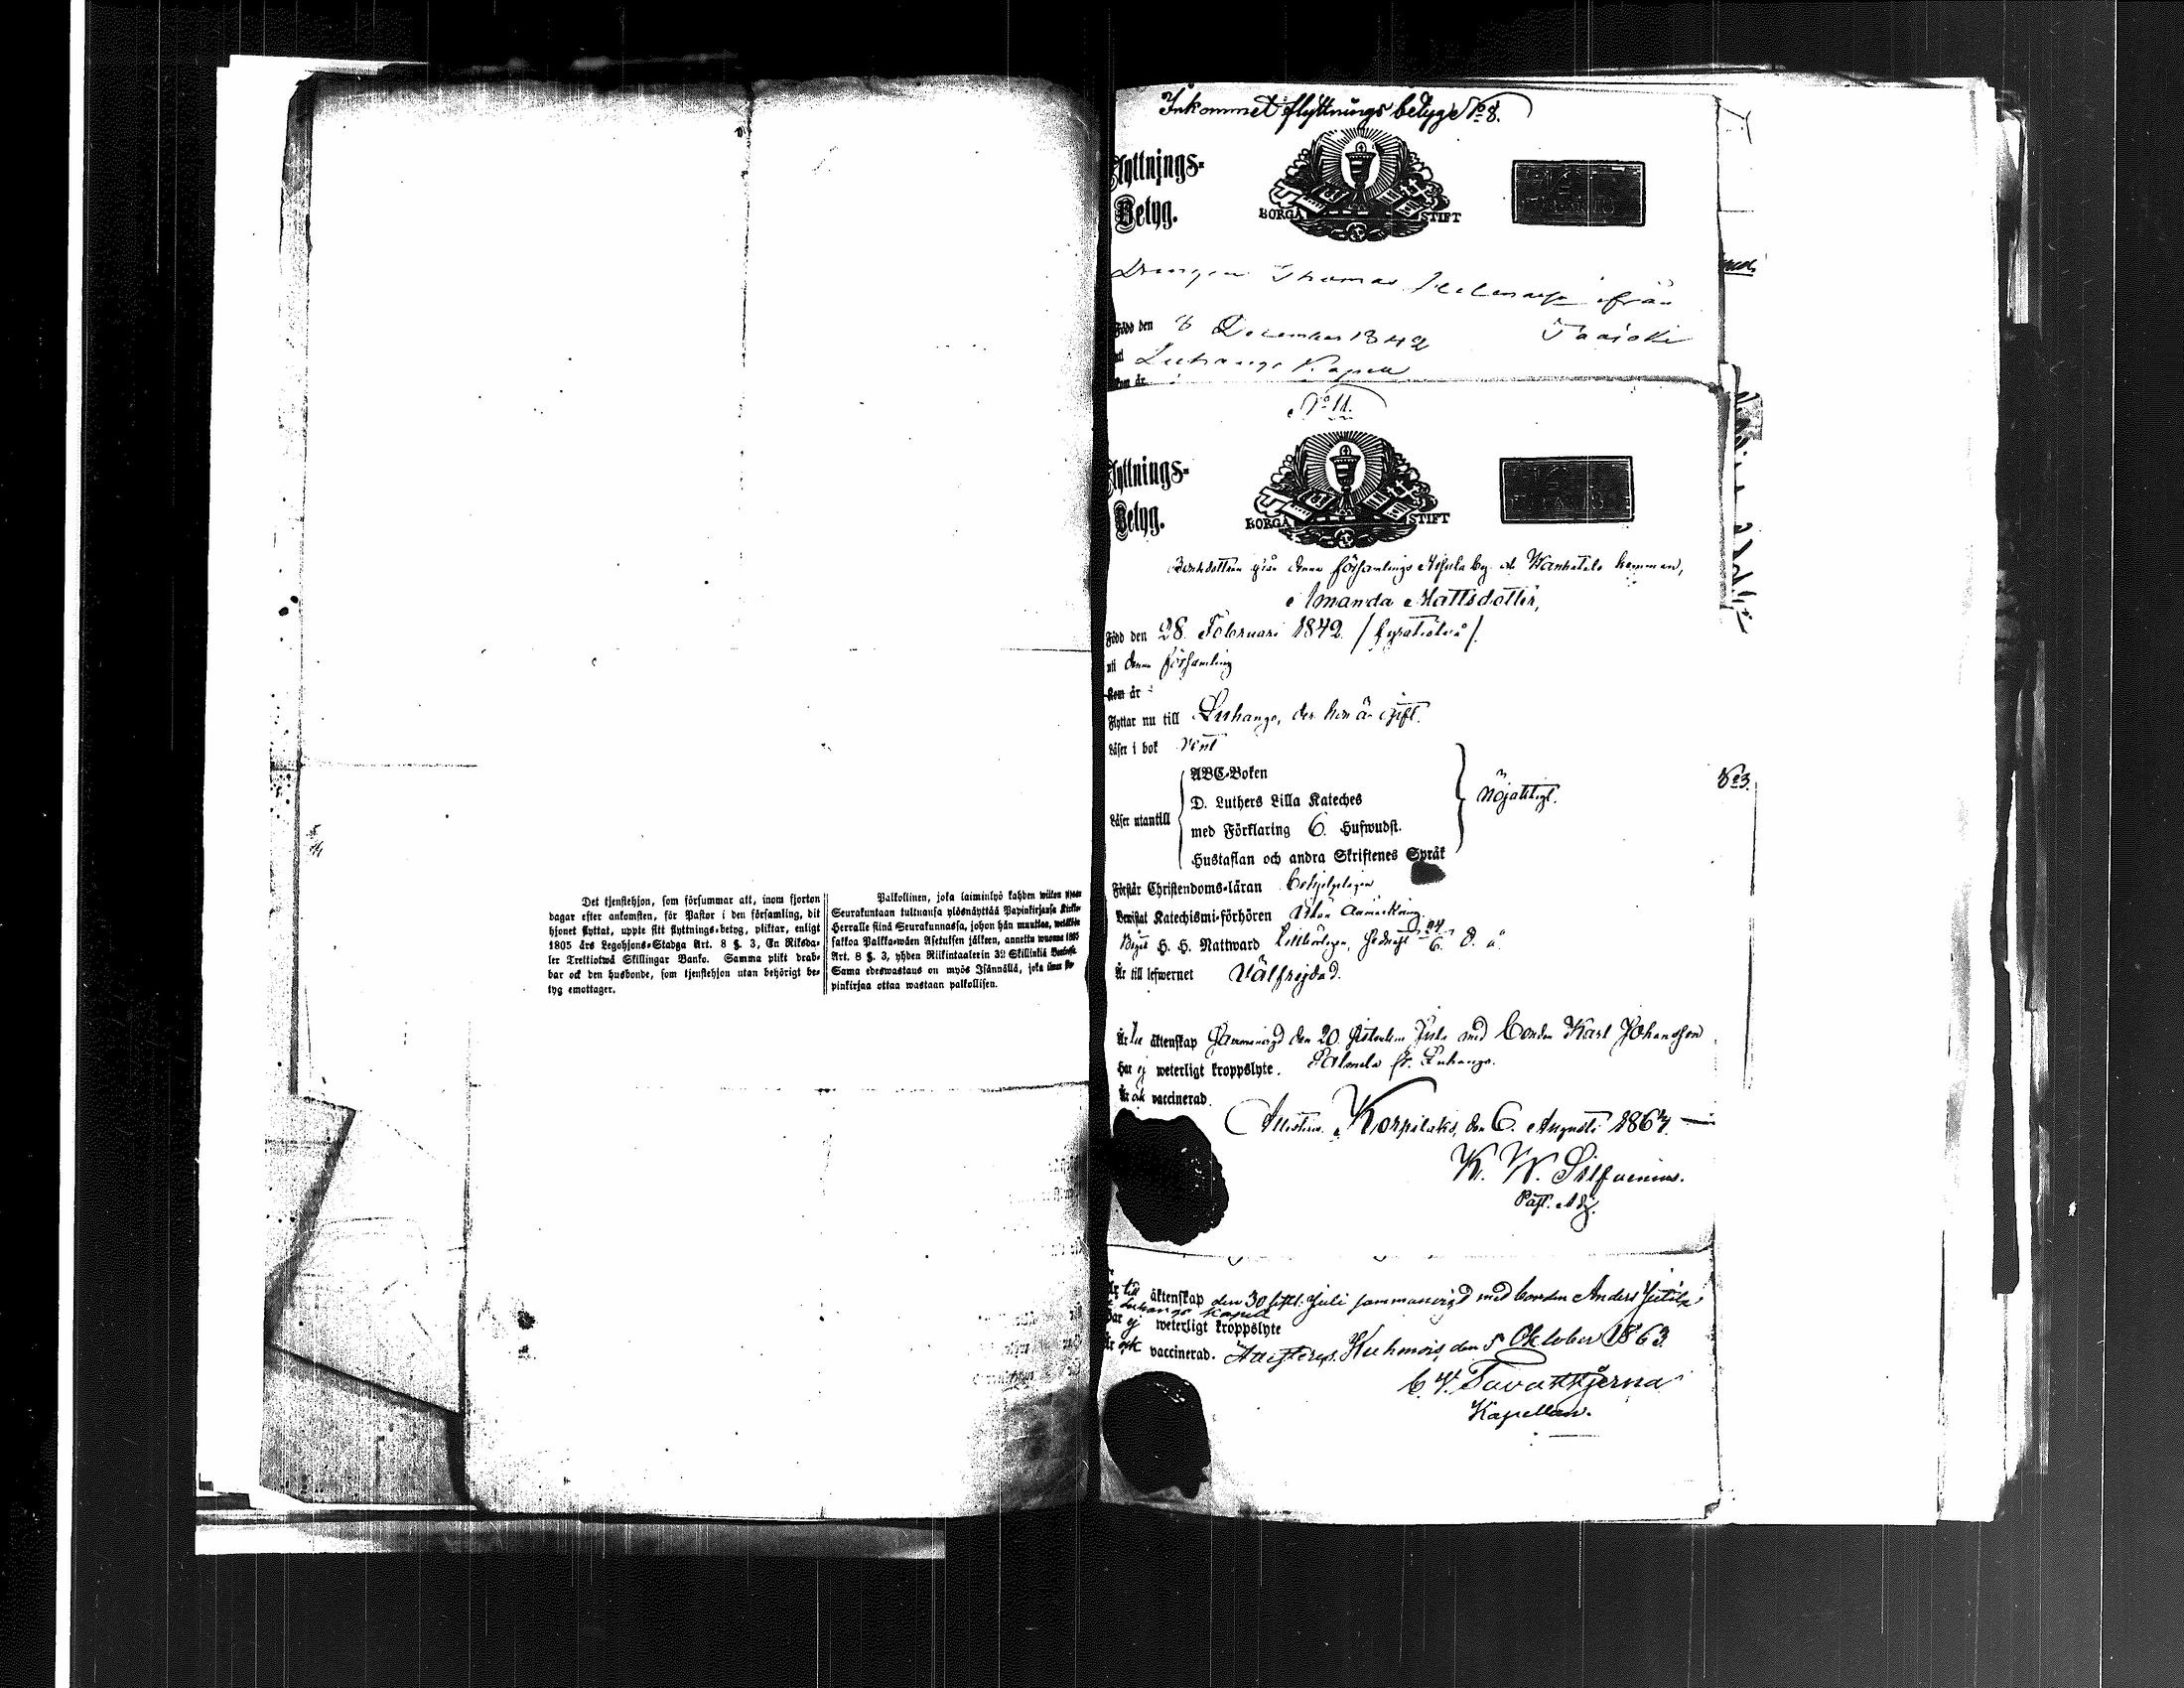 Det tjenstehjon, som försummar att, inom fjorton
dagar efter ankomsten, för Pastor i den församling, dit
hjonet flyttat, uppte sitt flyttnings-betyg, pliktar, enligt
1805 års Legohjons-Stadga Art. 8 §. 3, En Riksda-
ler Trettiotwå Skillingar Banko. Samma plikt drab-
bar ock den husbonde, som tjenstehjon utan behörigt be-
tyg emottager.
Palkollinen, joka laiminlyö kahden wiikon
Seurakuntaan tultuansa ylösnäyttää Papinkirjansa Kirkko-
Herralle siinä Seurakunnassa, johon hän muuttaa,
sakkoa Palkka-wäen Asetuksen jälkeen, annettu wuonna 1805
Art. 8 §. 3, yhden Riikintaalerin 32 Skillinkiä
Sama edeswastaus on myös Isännällä, joka
pinkirjaa ottaa wastaan palkollisen.
Inkommet flyttnings betyg No 8.
Flyttnings-
Betyg.
BORGÅ STIFT
Drengen Thomas ifrån
Född den 8 December 1842
Luhango Kapell
Kom år
No 11.
Flyttnings-
Betyg.
BORGÅ STIFT
från denna församlings by och hemman,
Amanda Mattsdotter,
Född den 28. Februari 1842. /fyratiotvå/.
uti denna församling
Kom år
Flyttar nu till Luhango, der hon är gift.
Läser i bok rent
Läser utantill
ABC-Boken
D. Luthers Lilla Kateches
med Förklaring 6. Hufwudst.
Hustaflan och andra Skriftenes Språk
Nöjaktigt.
No 3.
Förstår Christendoms-läran
Bewistat Katechismi-förhören utan anmärkning.
H. H. Nattward
Är till lefwernet Välfrejdad.
Är till äktenskap Sammanvigd den 20. sistledne Juli med Bonden Karl Johansson
Har ej weterligt kroppslyte. Salmela fr. Luhango.
Är ock vaccinerad.
Attesteras. Korpilaks, den 6. Augusti 1864.
K. W. Silfvenius.
Past. Adj.
Är till äktenskap den 30 sistl. Juli sammanvigd med bonden Anders
i Luhango Kapell
Har ej weterligt kroppslyte
Är ock vaccinerad. Attesteras. Kuhmois, den 5 Oktober 1863
Tavaststjerna
Kapellan.